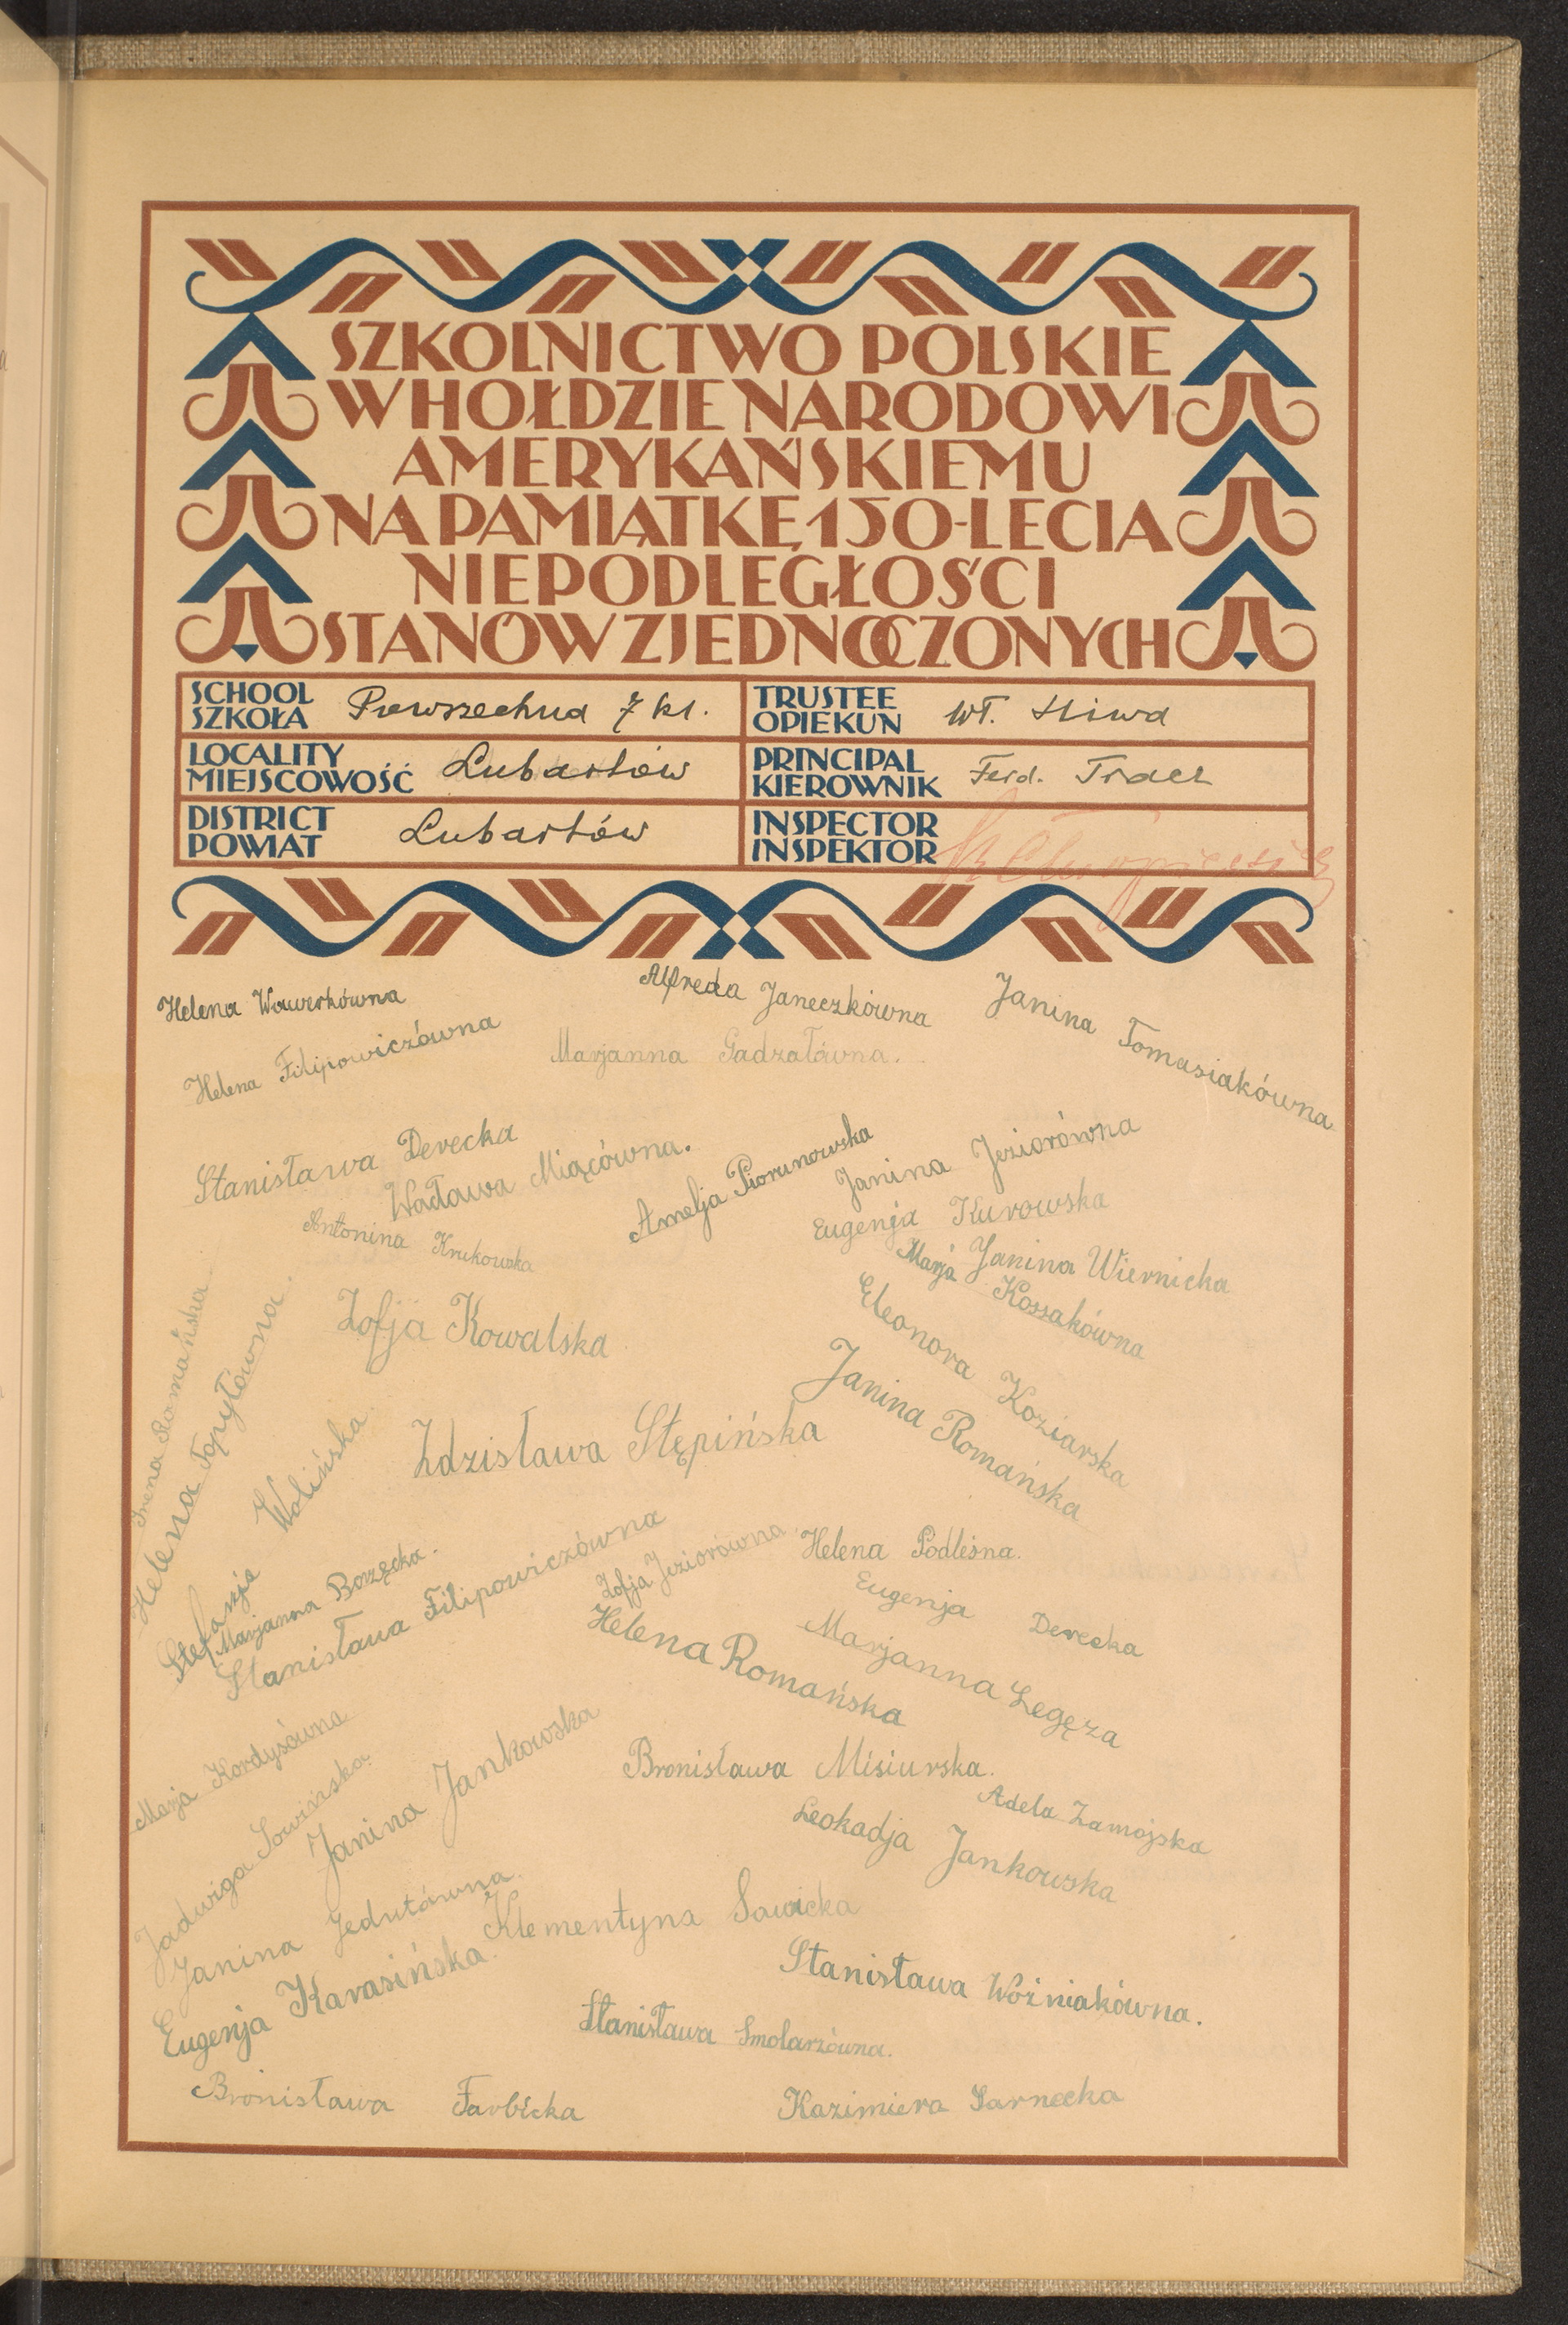 SZKOLNICTWO POLSKIE
W HOŁDZIE NARODOWI
AMERYKAŃSKIEMU
NA PAMIĄTKĘ 150-LECIA
NIEPODLEGŁOŚCI
STANÓW ZJEDNOCZONYCH
SCHOOL
SZKOŁA Powszechna 7 kl.
TRUSTEE
OPIEKUN Wł. Hiwa
LOCALITY
MIEJSCOWOŚĆ Lubartów
PRINCIPAL
KIEROWNIK Ferd. Tracz
DISTRICT
POWIAT Lubartów
INSPECTOR
INSPEKTOR
Helena Wawerkówna
Alfreda Janeczkówna
Janina Tomasiakówna
Helena Filipowiczówna
Marjanna Gadzałówna.
Stanisława Derecka
Wacława Miącówna.
Amelja Piorunowska
Janina Jeziorówna
Antonina Krukowska
Eugenja Kurowska
Janina Wiernicka
Marja Kossakówna
Zofja Kowalska
Eleonora Koziarska
Janina Romańska
Irena Romańska
Helena Topyłówna
Stefanja Wolińska
Zdzisława Stępińska
Marjanna Borzęcka.
Stanisława Filipowiczówna
Zofja Jeziorówna
Helena Podleśna.
Eugenja Derecka
Helena Romańska
Marjanna Legęza
Marja Kordysówna
Jadwiga Sowińska.
Janina Jankowska
Bronisława Misiurska.
Adela Zamojska
Leokadja Jankowska
Janina Jedutówna.
Klementyna Sawicka
Eugenja Karasińska.
Stanisława Woźniakówna.
Stanisława Smolarzówna.
Bronisława Farbicka
Kazimiera Sarnecka